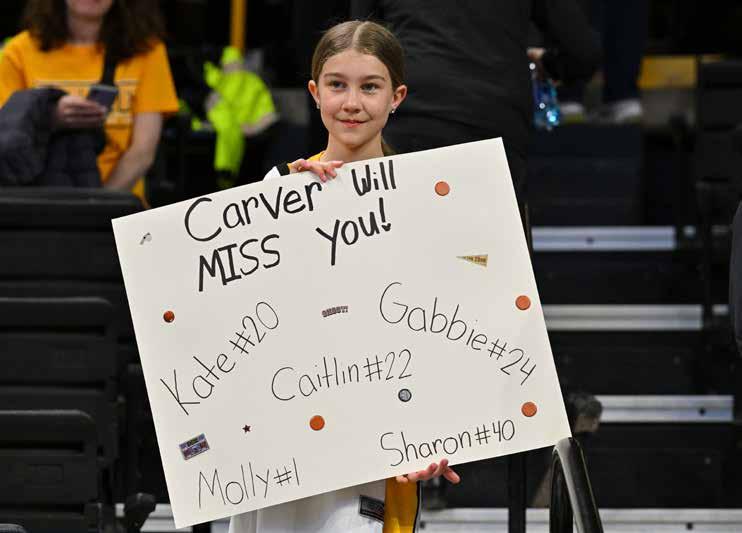 Carver Will
MISS You!
SHOOT!
Kate#20
Gabbie#24
Caitlin#22
Sharon#40
Molly#1